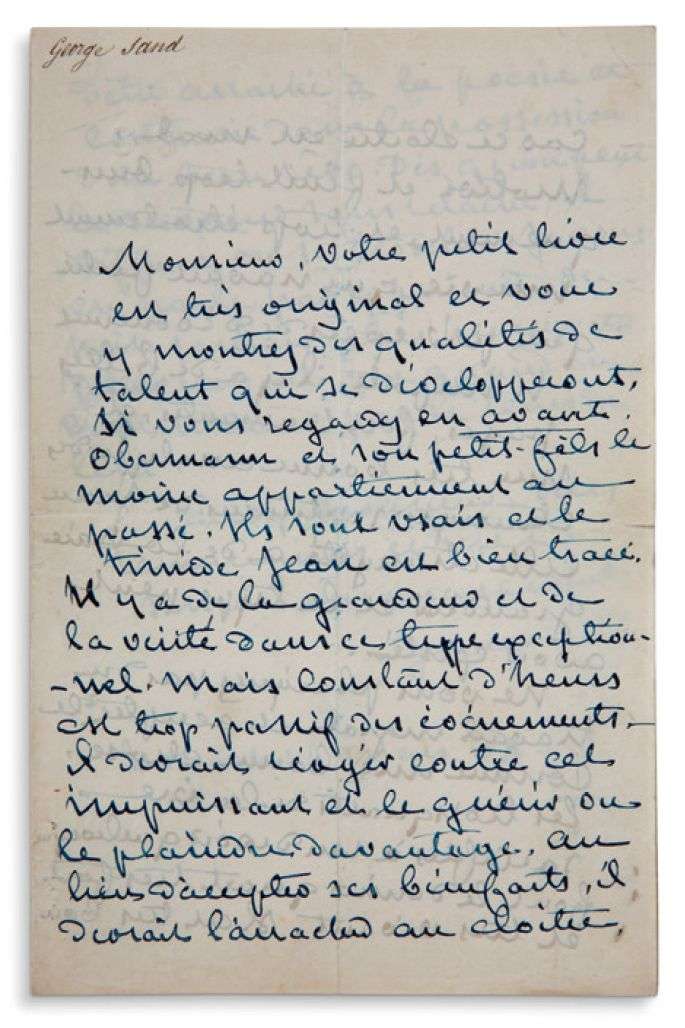 George Sand
Monsieur, votre petit livre
est très original et vous
y montrez des qualités de
talent qui se développeront,
si vous regardez en avant.
Obermann et son petit-fils le
moine appartiennent au
passé. Ils sont vrais et le
timide Jean est bien tracé.
Il y a de la grandeur et de
la vérité dans ce type exception-
-nel. Mais Constant d'heurs
est trop passif des événements.
Il devrait réagir contre cet
impuissant et le guérir ou
le plaindre davantage. au
lieu d'accepter ses bienfaits, il
devrait l'arracher au cloître,